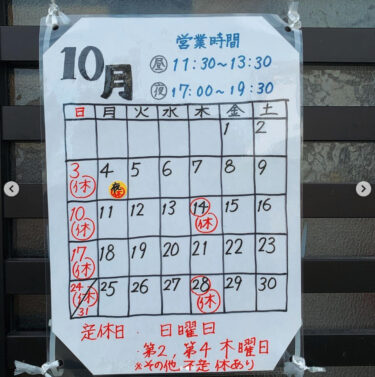 10月
営業時間
昼 11:30~13:30
夜 17:00~19:30
日 月 火 水 木 金 土
1 2
3 4 5 6 7 8 9
休
10 11 12 13 14 15 16
休 休
17 18 19 20 21 22 23
休
24 25 26 27 28 29 30
休 休
31
定休日 日曜日
第2, 第4 木曜日
※その他, 不定休あり